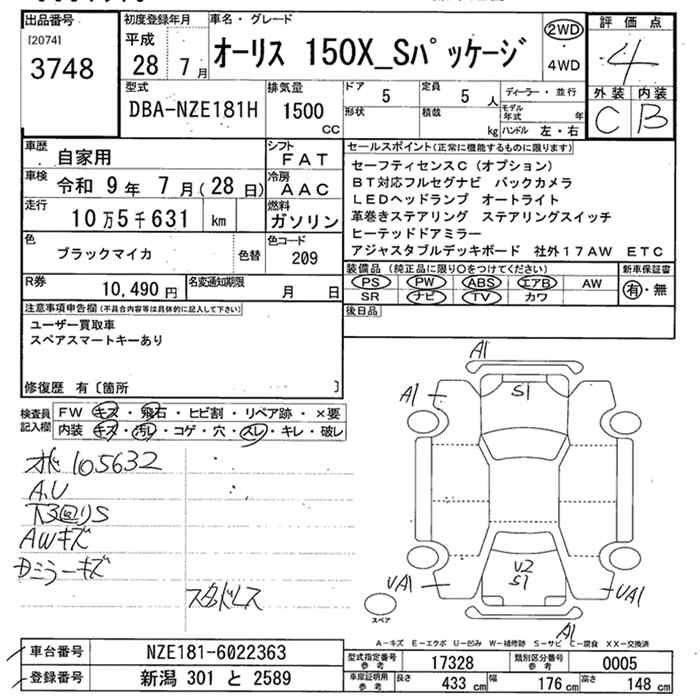 出品番号
[2074]
3748
初度登録年月
平成
28 7 月
車名・グレード
オーリス 150X_Sパッケージ
2WD
4WD
評価点
4
外装 内装
C B
型式
DBA-NZE181H
排気量
1500
CC
ドア
5
定員
5 人
形状
積載
kg
ディーラー・並行
モデル年式 年
ハンドル 左・右
車歴
自家用
シフト
FAT
車検
令和 9年 7月(28日)
冷房
AAC
走行
10万5千631 km
燃料
ガソリン
色
ブラックマイカ
色替
色コード
209
R券
10,490 円
名変通知期限
月 日
セールスポイント(正常に機能するものに限ります)
セーフティセンスC(オプション)
BT対応フルセグナビ バックカメラ
LEDヘッドランプ オートライト
革巻きステアリング ステアリングスイッチ
ヒーテッドドアミラー
アジャスタブルデッキボード 社外17AW ETC
装備品(純正品に限り○をつけてください)
PS PW ABS エアB AW
SR ナビ TV カワ
新車保証書
有・無
後日品
注意事項申告欄(不具合内容等は具体的に記入して下さい)
ユーザー買取車
スペアスマートキーあり
修復歴 有〔箇所 〕
検査員記入欄
FW キズ・飛石・ヒビ割・リペア跡・×要
内装 キズ・汚レ・コゲ・穴・スレ・キレ・破レ
105632
A.U
AWキズ
Dミラーキズ
スタッドレス
A1
S1
A1
U2
S1
UA1
UA1
A1
スペア
A-キズ E-エクボ U-凹み W-補修跡 S-サビ C-腐食 XX-交換済
車台番号 NZE181-6022363
登録番号 新潟 301 と 2589
型式指定番号 参考 17328
類別区分番号 参考 0005
車庫証明用 参考 長さ 433 cm 幅 176 cm 高さ 148 cm